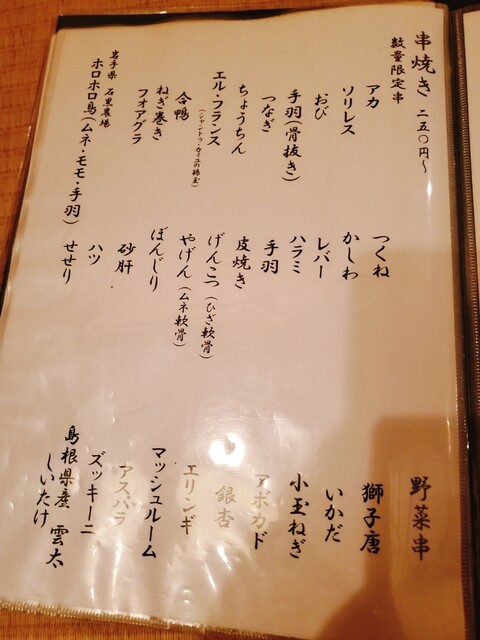 串焼き 二五〇円〜
数量限定串
アカ
ソリレス
おび
手羽(骨抜き)
つなぎ
ちょうちん
エル・フランス
(シャントゥ・カイユの鶏玉)
合鴨
ねぎ巻き
フォアグラ
岩手県 石黒農場
ホロホロ鳥(ムネ・モモ・手羽)
つくね
かしわ
レバー
ハラミ
手羽
皮焼き
げんこつ(ひざ軟骨)
やげん(ムネ軟骨)
ぼんじり
砂肝
ハツ
せせり
野菜串
獅子唐
いかだ
小玉ねぎ
アボカド
銀杏
エリンギ
マッシュルーム
アスパラ
ズッキーニ
島根県産 雲太
しいたけ